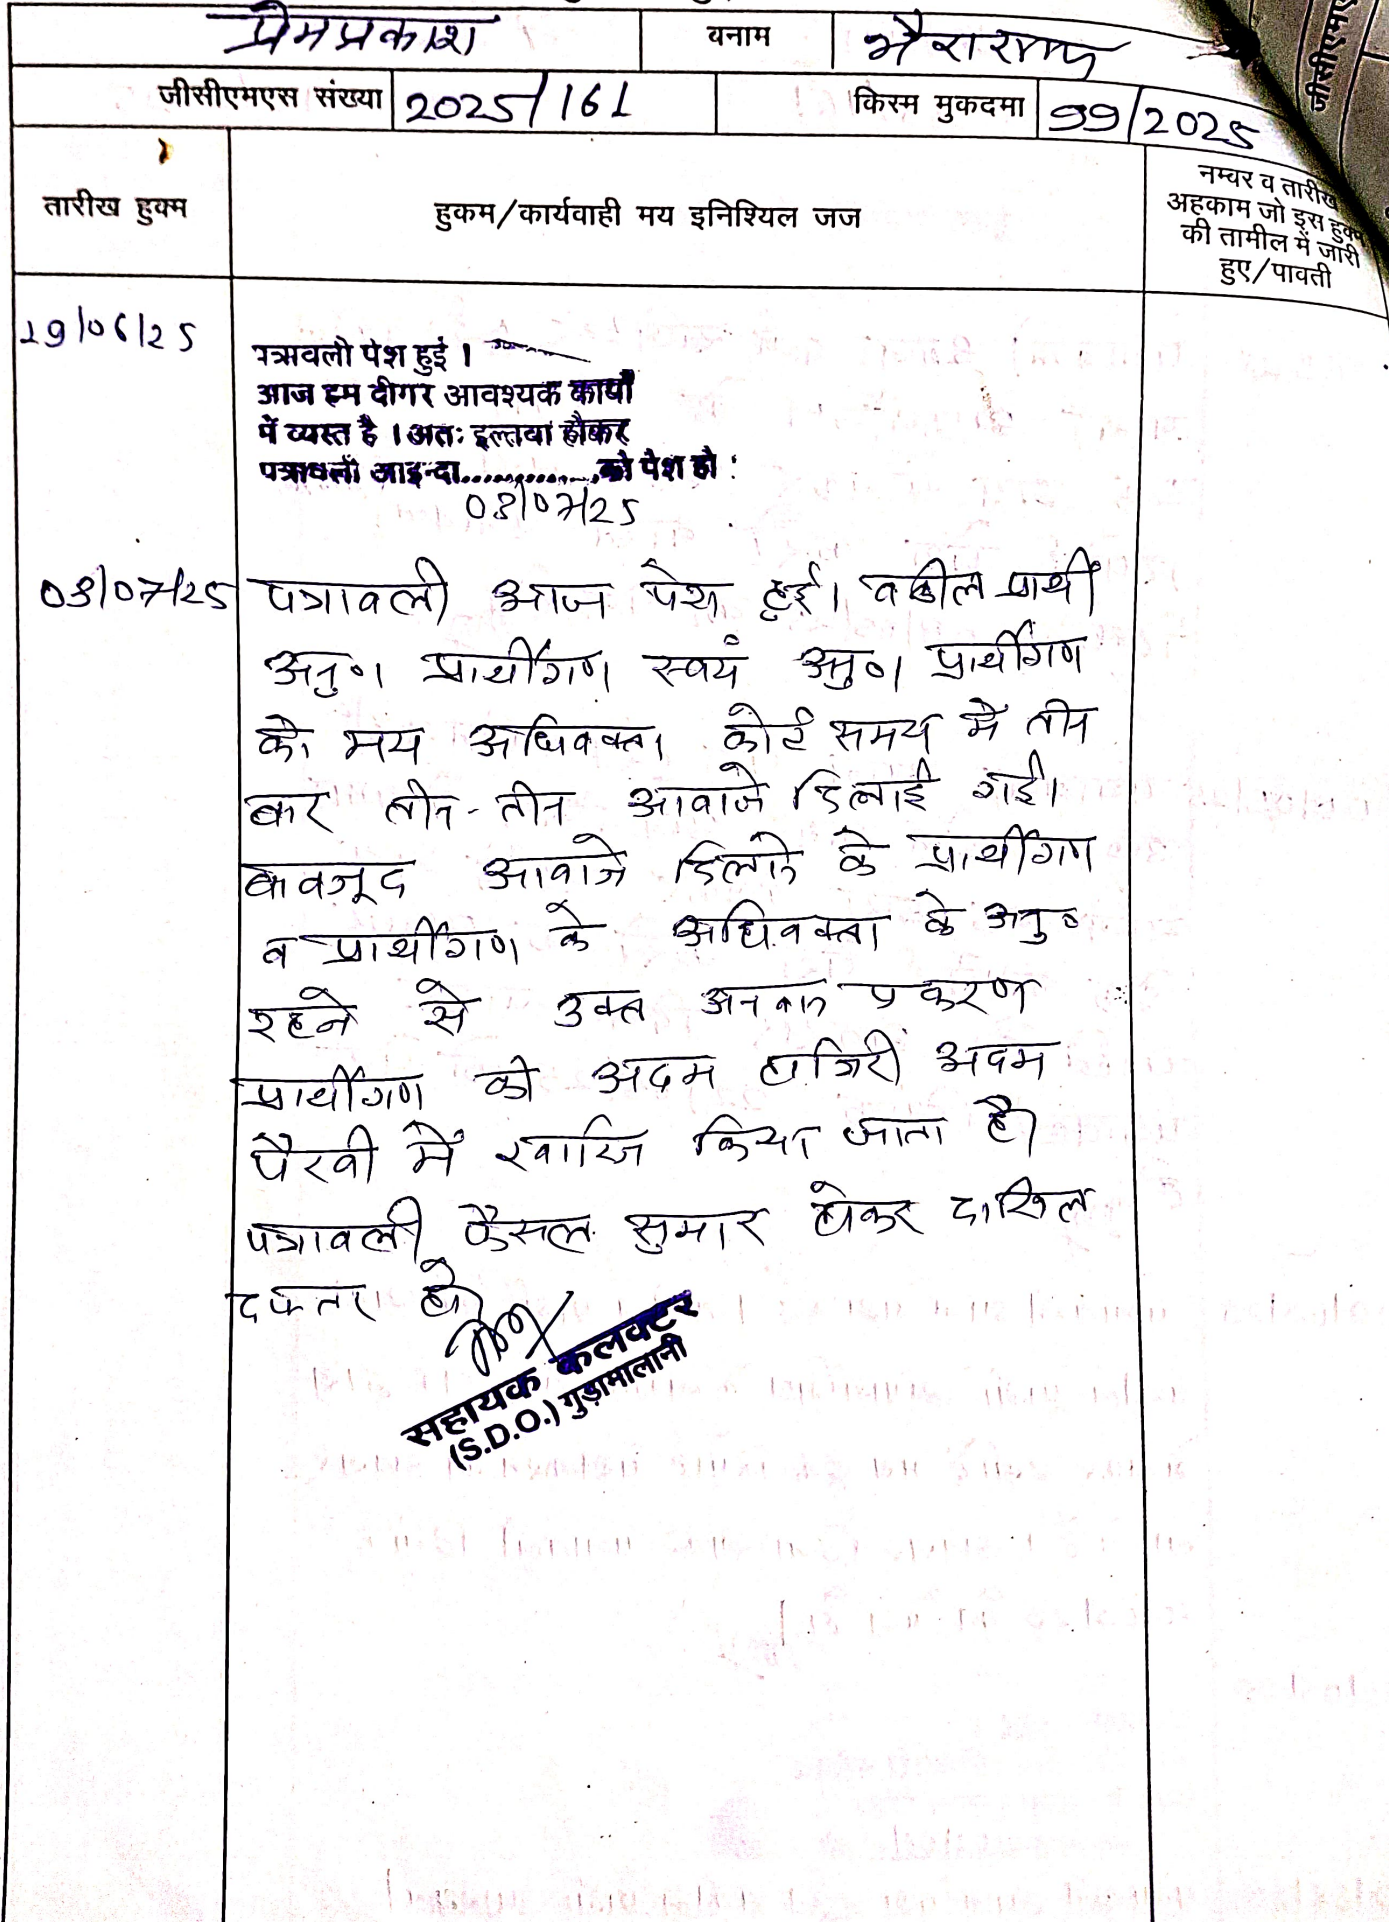 प्रेमप्रकाश बनाम भैराराम
जीसीएमएस संख्या 2025/161 किस्म मुकदमा 99/2025
तारीख हुक्म
हुकम/कार्यवाही मय इनिश्यिल जज
नम्बर व तारीख
अहकाम जो इस हुक्म
की तामील में जारी
हुए/पावती
19/06/25
पत्रावली पेश हुई ।
आज हम दीगर आवश्यक कार्यों
में व्यस्त है । अतः इल्तवा होकर
पत्रावली आइन्दा..............को पेश हो :
03/07/25
03/07/25 पत्रावली आज पेश हुई। वकील प्रार्थी
अनु०। प्रार्थीगण स्वयं अनु०। प्रार्थीगण
को मय अधिवक्ता कोर्ट समय में तीन
बार तीन-तीन आवाजे दिलाई गई।
बावजूद आवाजे दिलाने के प्रार्थीगण
व प्रार्थीगण के अधिवक्ता के अनु०
रहने से उक्त प्रकरण
प्रार्थीगण को अदम हाजिरी अदम
पैरवी में खारिज किया जाता है।
पत्रावली फैसल सुमार होकर दाखिल
दफ्तर हो।
सहायक कलक्टर
(S.D.O.) गुड़ामालानी